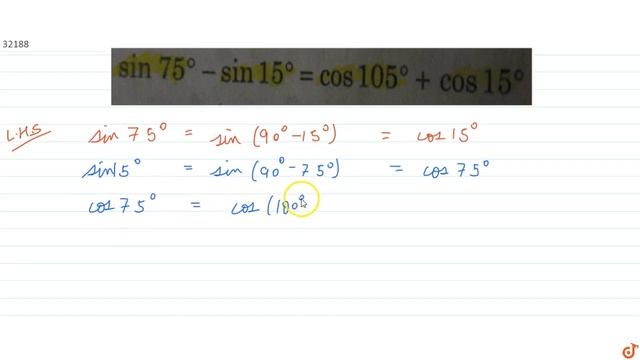 32188
sin 75° – sin 15° = cos 105° + cos 15°
L.H.S sin 75° = sin (90° – 15°) = cos 15°
sin15° = sin (90° – 75°) = cos 75°
cos 75° = cos (180°